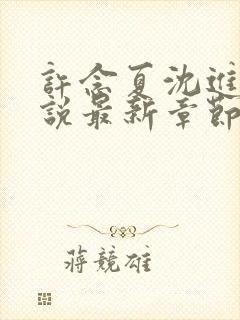 許念夏沈進
說最新章節
蔣競雄